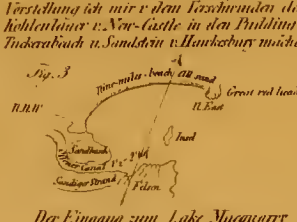 Vorstellung ich mir v dem Verschwinden de
Kohlenläger v. New-Castle in den Pudding
Tuckerabeach u. Sandstein v. Hawkesbury mache
Fig. 3
Nine-miles-beach all sand
Great red head
N.N.W
N. East
Insel
Sandbank
Canal
Sandiger Strand
Felsen
Der Eingang zum Lake Macquarry